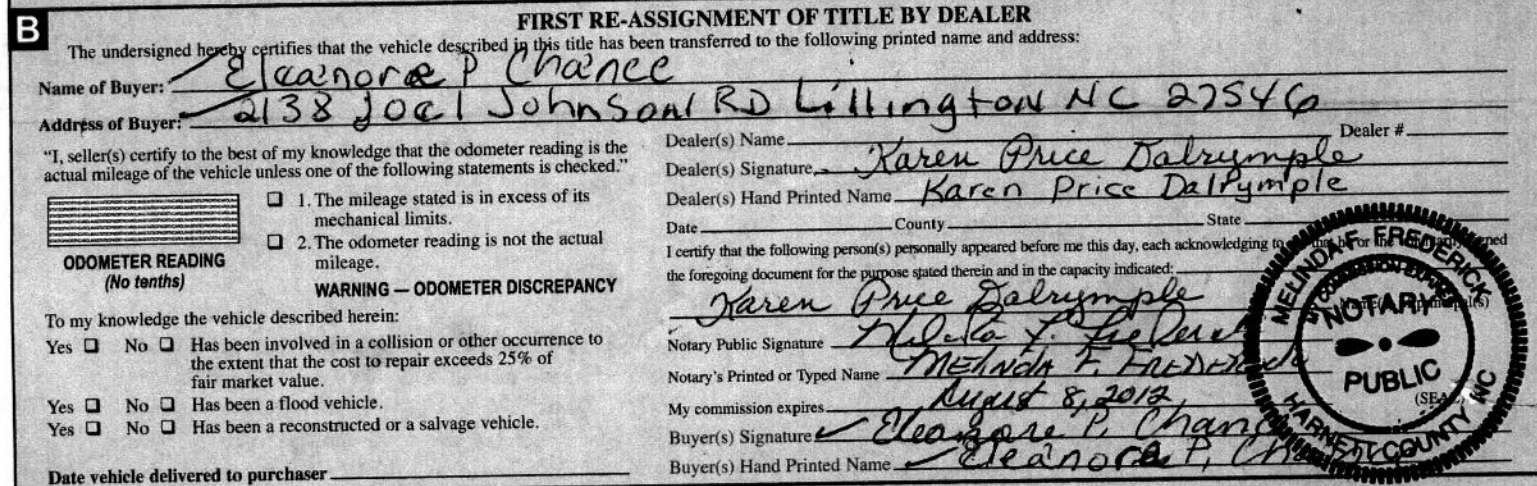 B
FIRST RE-ASSIGNMENT OF TITLE BY DEALER
The undersigned hereby certifies that the vehicle described in this title has been transferred to the following printed name and address:
Name of Buyer: Eleanore P Chance
Address of Buyer: 2138 Joel Johnson RD Lillington NC 27546
"I, seller(s) certify to the best of my knowledge that the odometer reading is the
actual mileage of the vehicle unless one of the following statements is checked."
ODOMETER READING
(No tenths)
☐ 1. The mileage stated is in excess of its
mechanical limits.
☐ 2. The odometer reading is not the actual
mileage.
WARNING — ODOMETER DISCREPANCY
To my knowledge the vehicle described herein:
Yes ☐ No ☐ Has been involved in a collision or other occurrence to
the extent that the cost to repair exceeds 25% of
fair market value.
Yes ☐ No ☐ Has been a flood vehicle.
Yes ☐ No ☐ Has been a reconstructed or a salvage vehicle.
Date vehicle delivered to purchaser
Dealer(s) Name Dealer #
Dealer(s) Signature Karen Price Dalrymple
Dealer(s) Hand Printed Name Karen Price Dalrymple
Date County State
I certify that the following person(s) personally appeared before me this day, each acknowledging to
the foregoing document for the purpose stated therein and in the capacity indicated:
Karen Price Dalrymple
Notary Public Signature Melinda F. Frederick
Notary's Printed or Typed Name MELINDA F. FREDERICK
My commission expires August 8, 2012
Buyer(s) Signature Eleanore P. Chance
Buyer(s) Hand Printed Name Eleanore P. Chance
MELINDA F. FREDERICK
MY COMMISSION EXPIRES
NOTARY
PUBLIC
HARNETT COUNTY NC